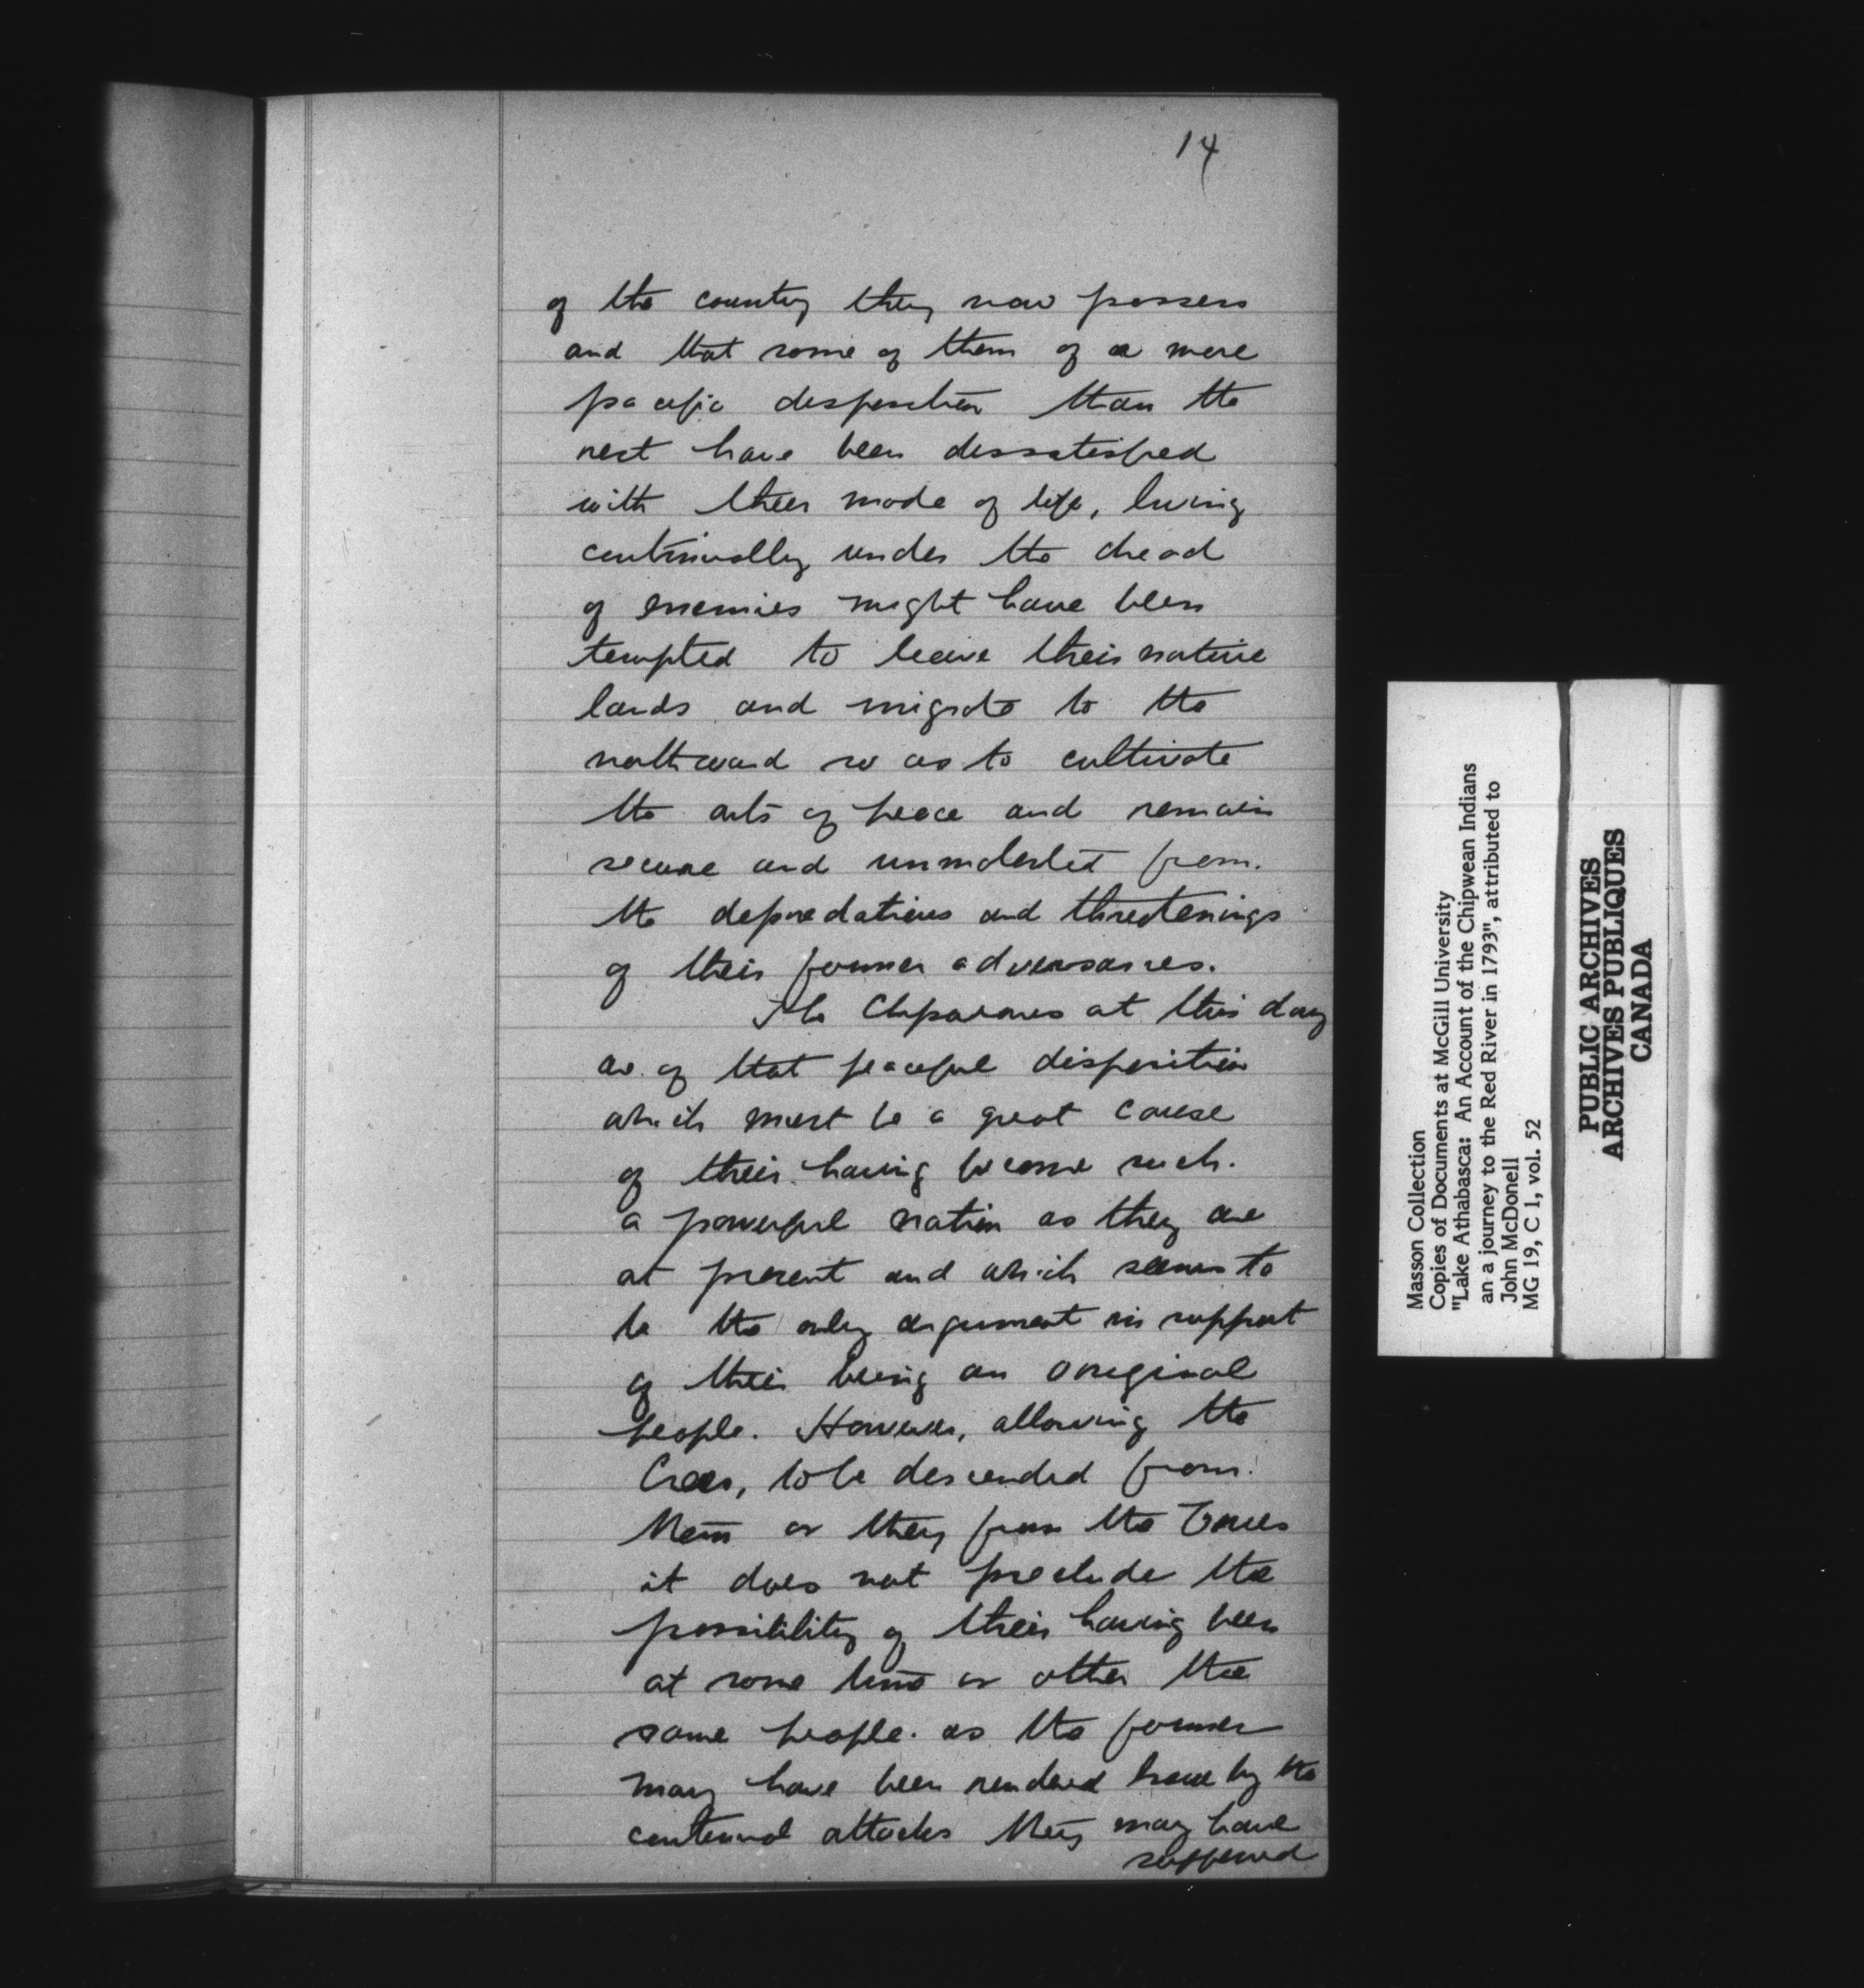 14
of the country they now possess
and that some of them of a more
pacific desposition than the
rest have been dissatisfied
with their mode of life, living
continually under the dread
of enemies might have been
tempted to leave their native
lands and migrate to the
northward so as to cultivate
the arts of peace and remain
secure and unmolested from
the depredations and threatenings
of their former adversaries.
The Chipweans at this day
are of that peaceful disposition
which must be a great cause
of their having become such
a powerful nation as they are
at present and which seems to
be the only argument in support
of their being an original
people. However, allowing the
Crees, to be descended from
them or they from the Crees
it does not preclude the
possibility of their having been
at some time or other the
same people. as the former
may have been rendered brave by the
continual attacks they may have
suffered
Masson Collection
Copies of Documents at McGill University
"Lake Athabasca: An Account of the Chipwean Indians
an a journey to the Red River in 1793", attributed to
John McDonell
MG 19, C 1, vol. 52
PUBLIC ARCHIVES
ARCHIVES PUBLIQUES
CANADA